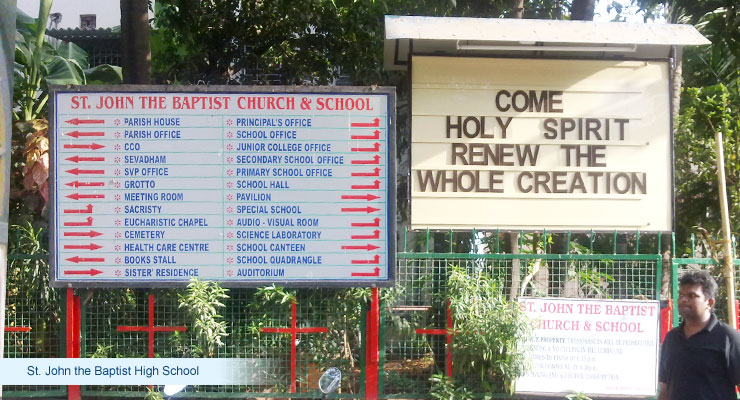 ST. JOHN THE BAPTIST CHURCH & SCHOOL
PARISH HOUSE
PARISH OFFICE
CCO
SEVADHAM
SVP OFFICE
GROTTO
MEETING ROOM
SACRISTY
EUCHARISTIC CHAPEL
CEMETERY
HEALTH CARE CENTRE
BOOKS STALL
SISTER' RESIDENCE
PRINCIPAL'S OFFICE
SCHOOL OFFICE
JUNIOR COLLEGE OFFICE
SECONDARY SCHOOL OFFICE
PRIMARY SCHOOL OFFICE
SCHOOL HALL
PAVILION
SPECIAL SCHOOL
AUDIO - VISUAL ROOM
SCIENCE LABORATORY
SCHOOL CANTEEN
SCHOOL QUADRANGLE
AUDITORIUM
COME
HOLY SPIRIT
RENEW THE
WHOLE CREATION
ST. JOHN THE BAPTIST
CHURCH & SCHOOL
PROPERTY
St. John the Baptist High School